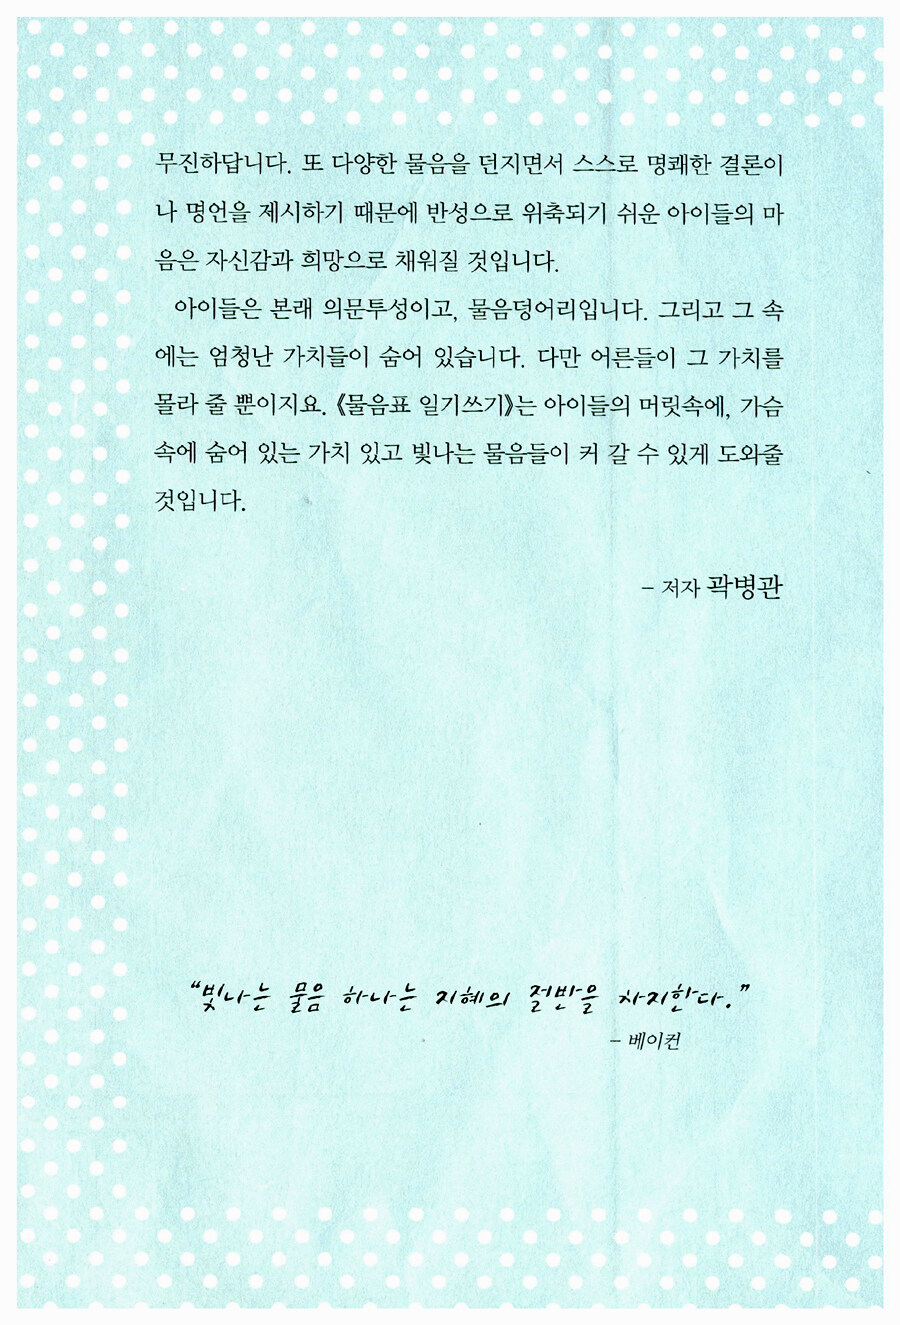 무진하답니다. 또 다양한 물음을 던지면서 스스로 명쾌한 결론이
나 명언을 제시하기 때문에 반성으로 위축되기 쉬운 아이들의 마
음은 자신감과 희망으로 채워질 것입니다.
아이들은 본래 의문투성이고, 물음덩어리입니다. 그리고 그 속
에는 엄청난 가치들이 숨어 있습니다. 다만 어른들이 그 가치를
몰라 줄 뿐이지요. 《물음표 일기쓰기》는 아이들의 머릿속에, 가슴
속에 숨어 있는 가치 있고 빛나는 물음들이 커 갈 수 있게 도와줄
것입니다.
– 저자 곽병관
“빛나는 물음 하나는 지혜의 절반을 차지한다.”
– 베이컨